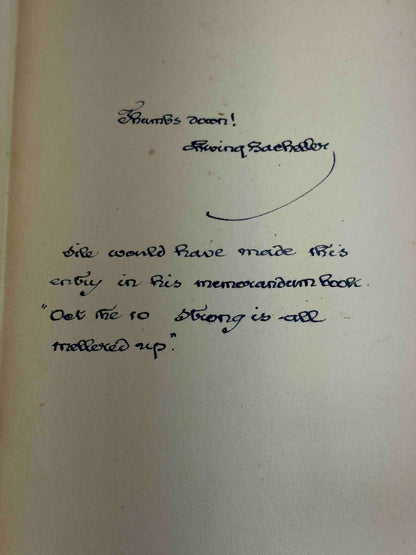 Thumbs down!
Irving Bacheller
Sile would have made this
entry in his memorandum book.
"Oct the 10 Strong is all
mellered up".